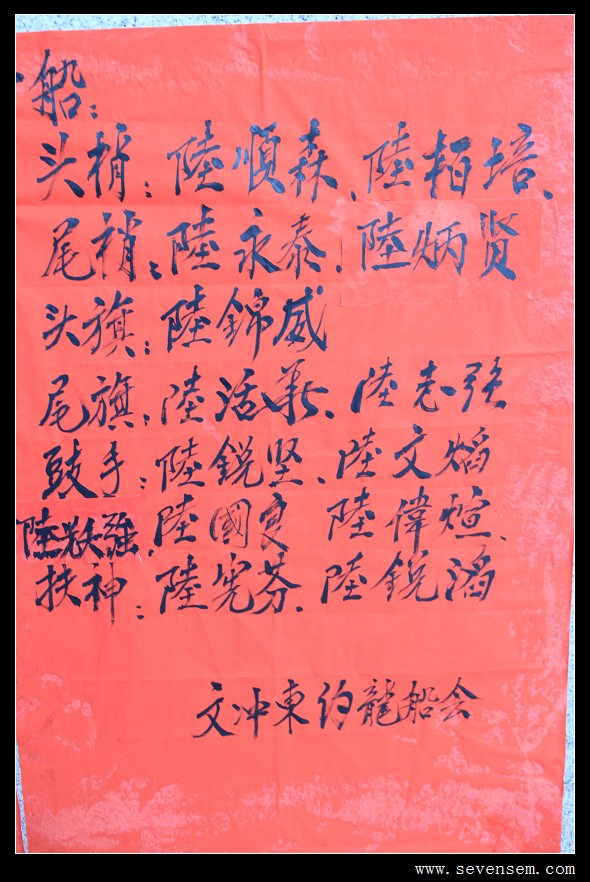 船：
头梢：陸順森、陸栢培、
尾梢：陸永泰、陸炳贤
头旗：陸錦威
尾旗：陸活新、陸志强
鼓手：陸鋭坚、陸文焰
陸铁强、陸國安 陸偉煊、
扶神：陸宪芬、陸鋭滔
文冲東约龍船会
www.sevensem.com